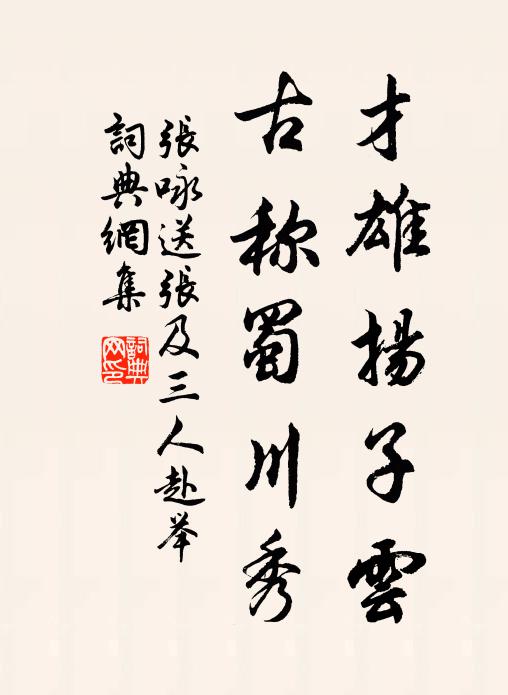 才雄揚子雲
古称蜀川秀
張咏送張及三人赴举
詞典網集
詞典网印